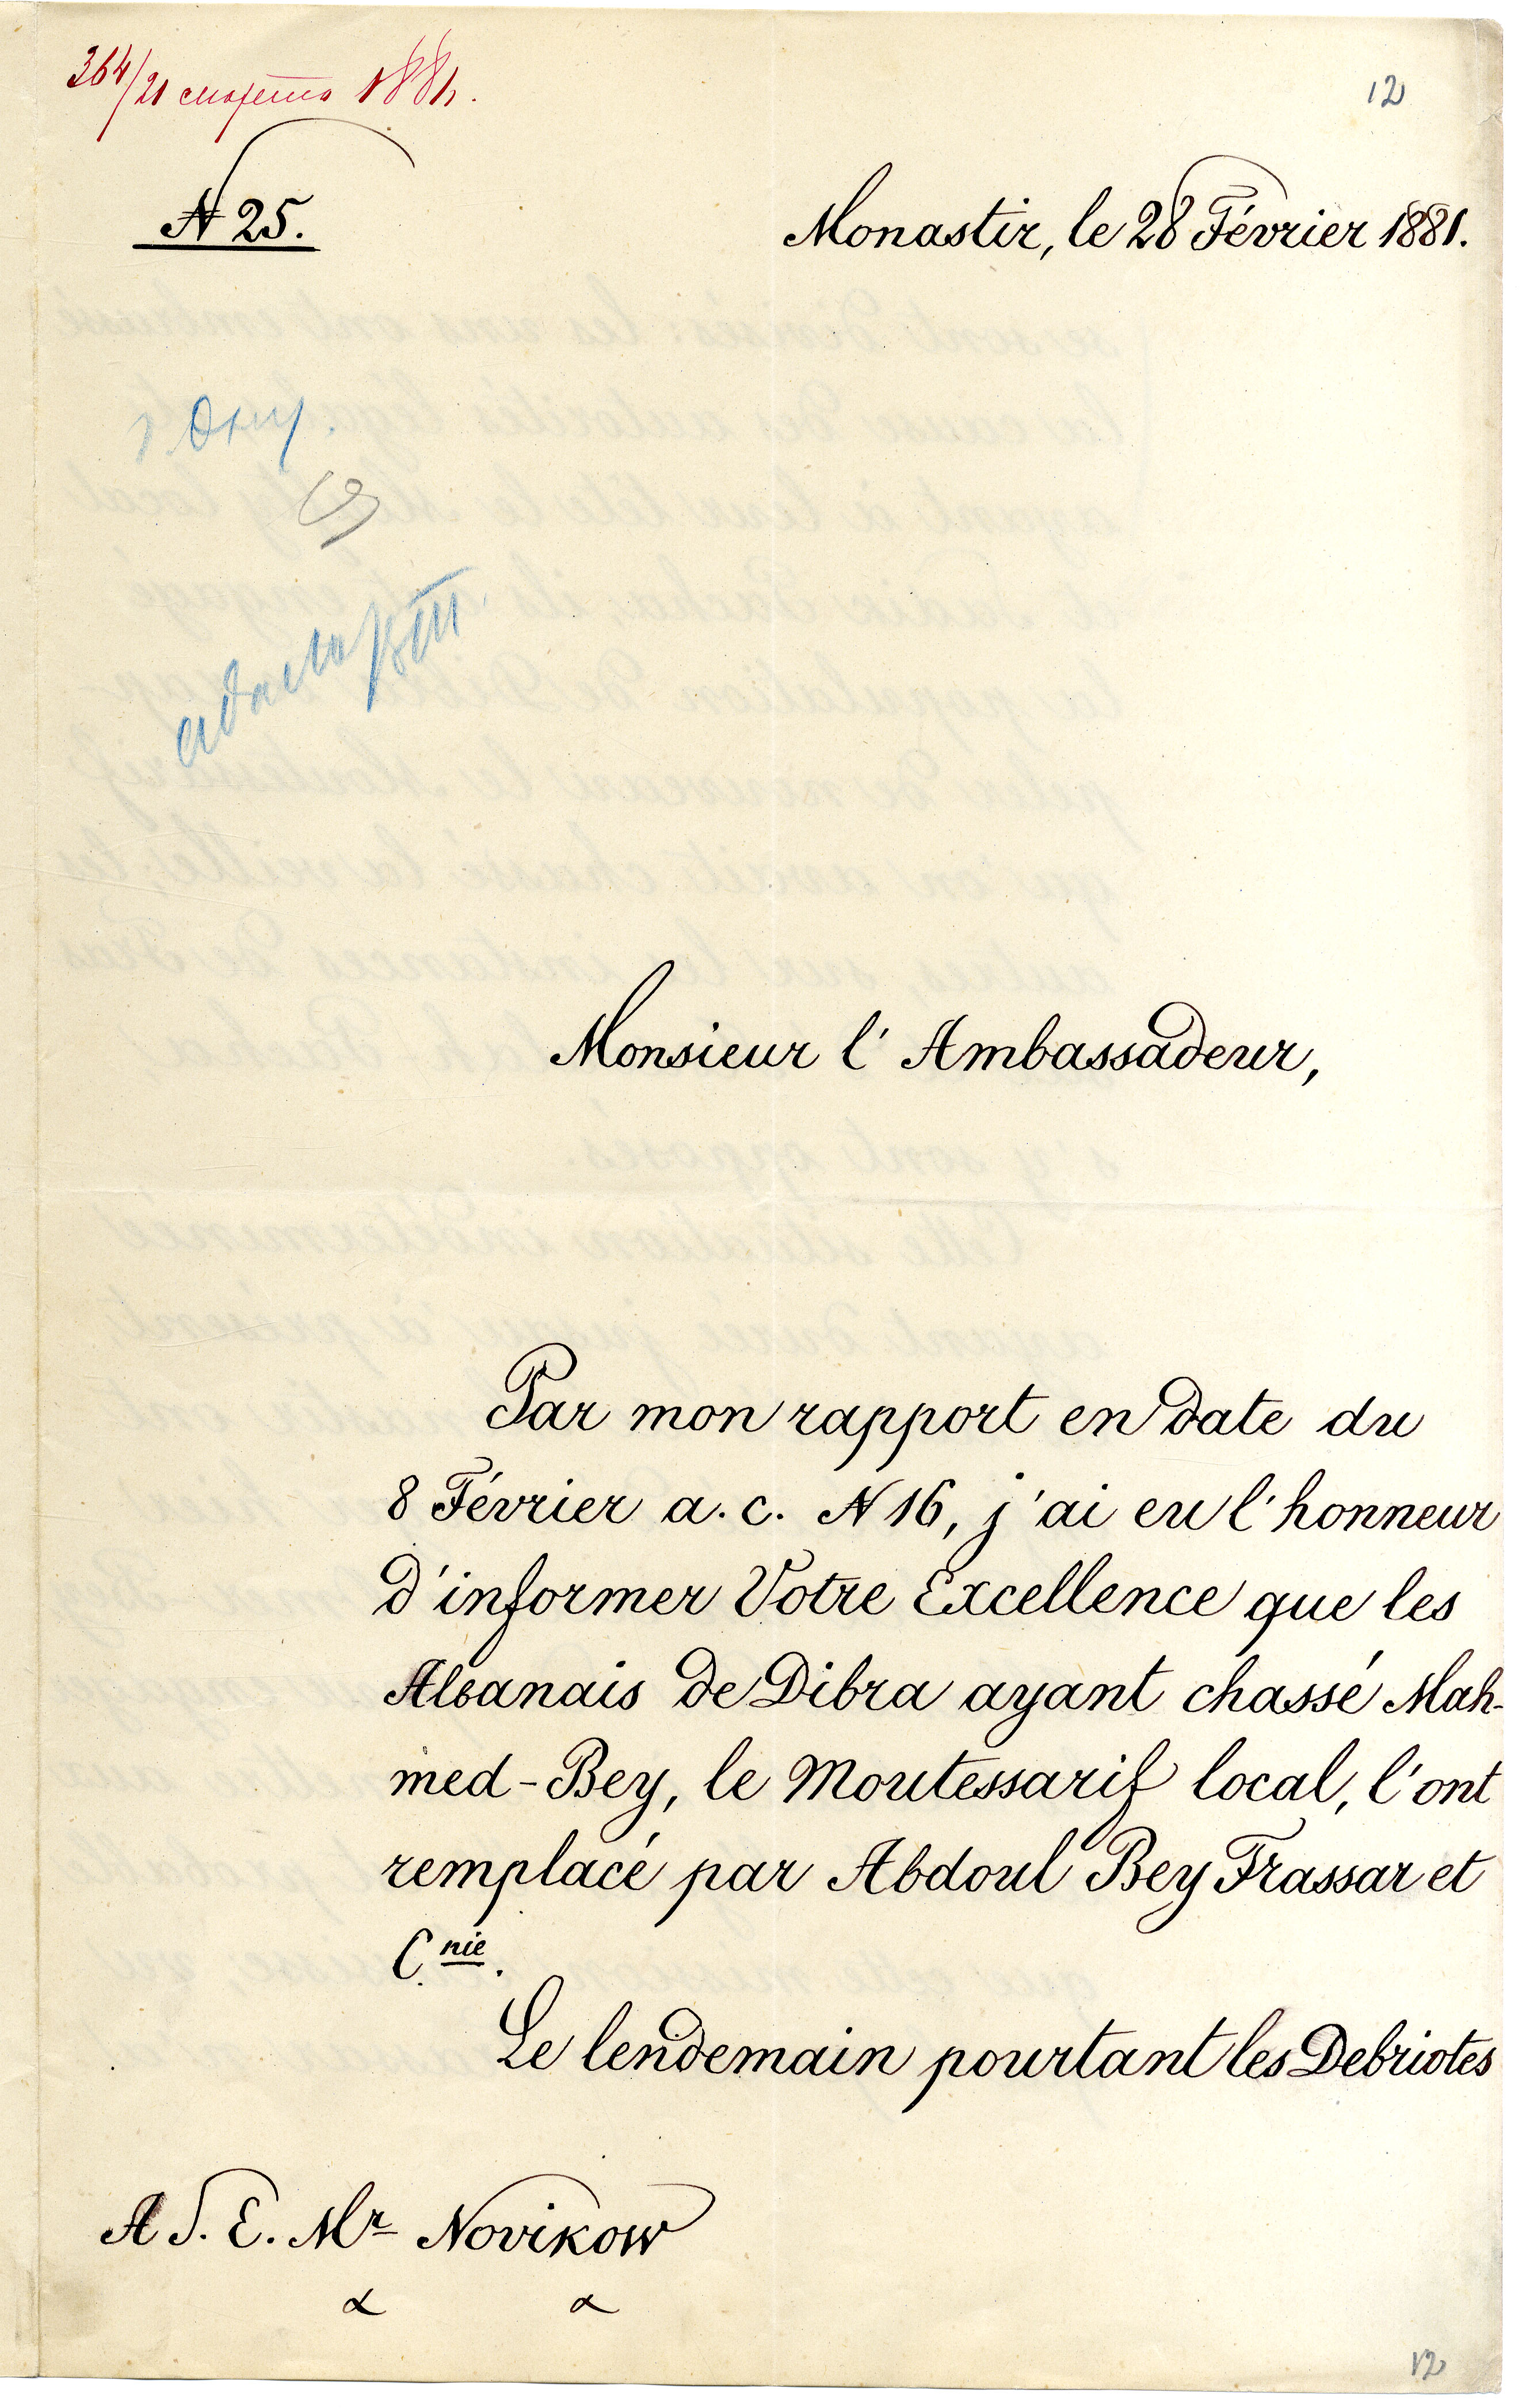 364/21 марта 1881.
12
N 25.
Monastir, le 28 Février 1881.
Monsieur l'Ambassadeur,
Par mon rapport en date du
8 Février a. c. N 16, j'ai eu l'honneur
d'informer Votre Excellence que les
Albanais de Dibra ayant chassé Mah-
med-Bey, le Moutessarif local, l'ont
remplacé par Abdoul Bey Frassar et
Cnie.
Le lendemain pourtant les Debriotes
A S. E. Mr Novikow
12